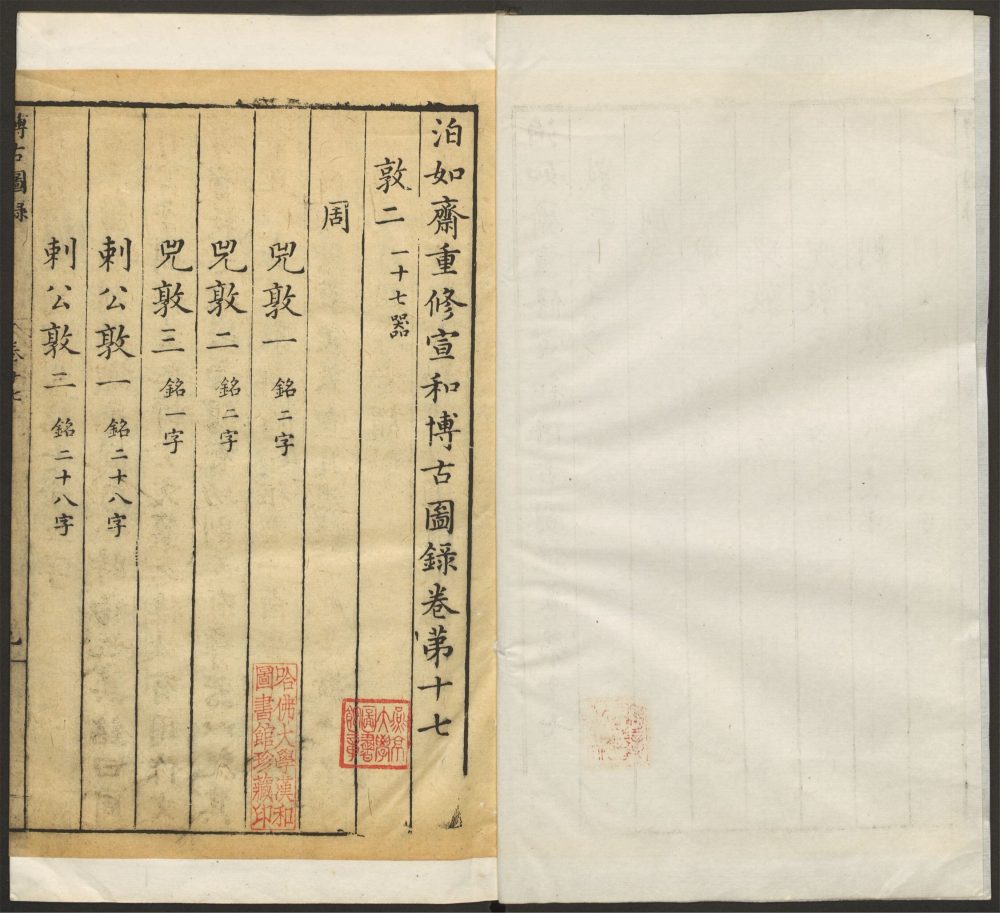 泊如齋重修宣和博古圖錄卷苐十七
敦二 一十七器
周
兕敦一 銘二字
兕敦二 銘二字
兕敦三 銘一字
剌公敦一 銘二十八字
剌公敦二 銘二十八字
博古圖錄
卷十七
哈佛大學漢和
圖書館珍藏印
燕京
大學
圖書